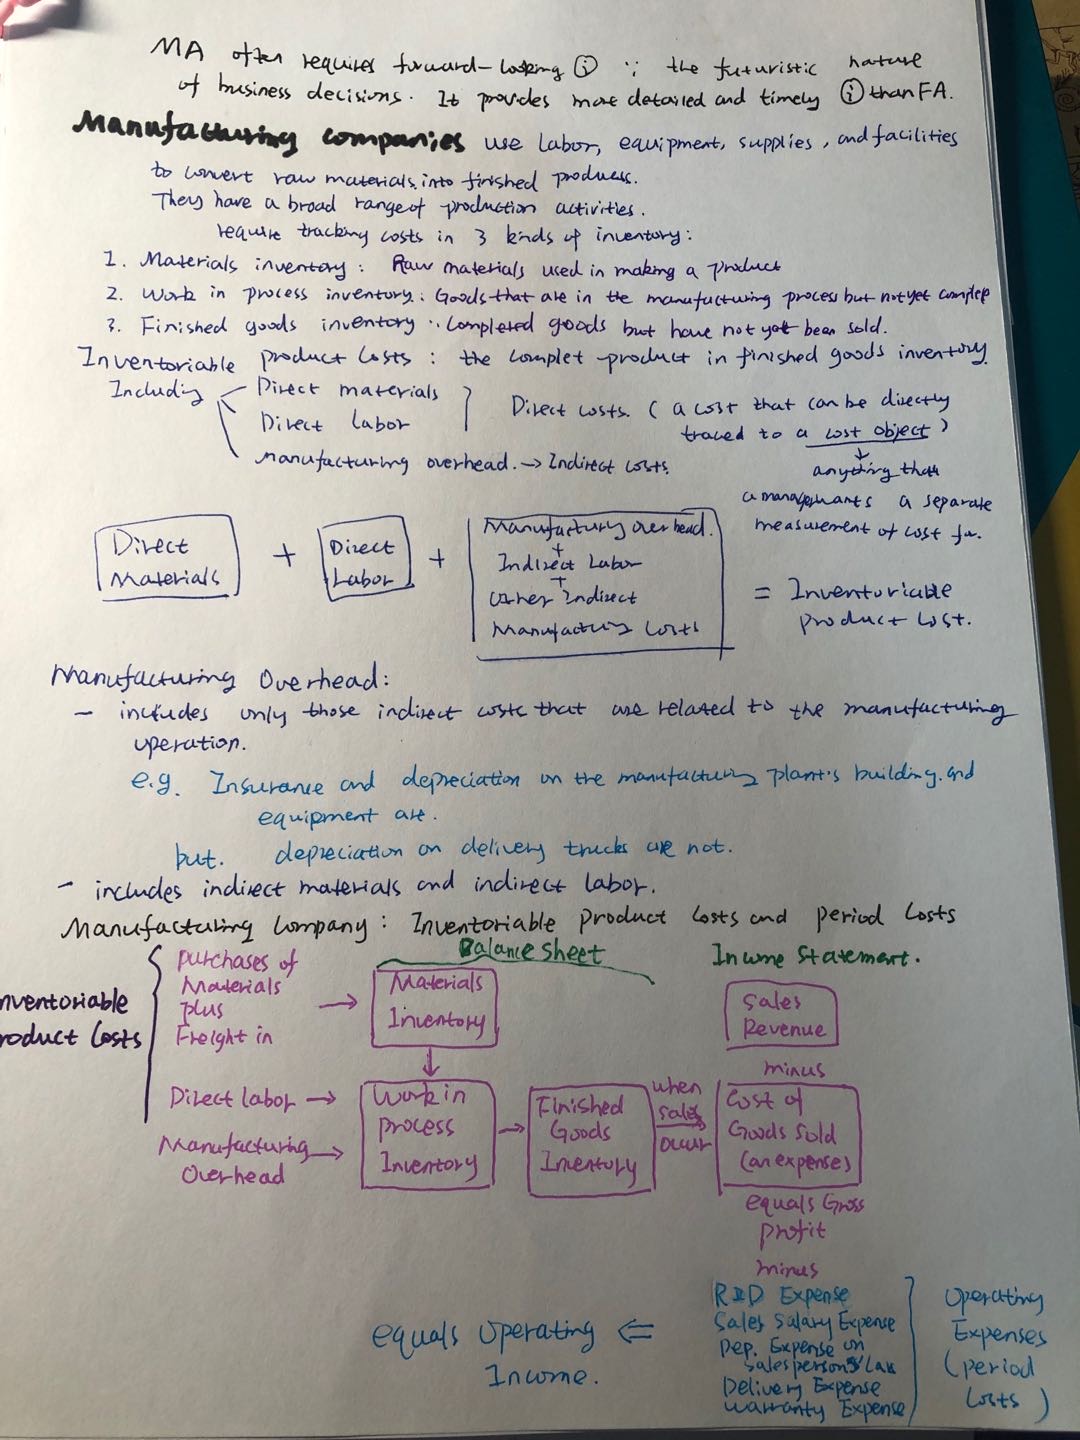 MA often requires forward-looking ⓘ ∵ the futuristic nature
of business decisions. It provides more detailed and timely ⓘ than FA.
Manufacturing companies use labor, equipment, supplies, and facilities
to convert raw materials into finished products.
They have a broad range of production activities.
require tracking costs in 3 kinds of inventory:
1. Materials inventory: Raw materials used in making a product
2. Work in process inventory: Goods that are in the manufacturing process but not yet complete
3. Finished goods inventory: Completed goods but have not yet been sold.
Inventoriable product costs: the complet product in finished goods inventory
Including
Direct materials
Direct labor
Manufacturing overhead. → Indirect costs.
Direct costs. (a cost that can be directly
traced to a cost object)
↓
anything that
a manager wants a separate
measurement of cost for.
Direct
Materials
+
Direct
Labor
+
Manufacturing overhead.
+
Indirect Labor
+
Other Indirect
Manufacturing Costs
= Inventoriable
product cost.
Manufacturing Overhead:
- includes only those indirect costs that are related to the manufacturing
operation.
e.g. Insurance and depreciation on the manufacturing plant's building and
equipment are.
but. depreciation on delivery trucks are not.
- includes indirect materials and indirect labor.
Manufacturing Company: Inventoriable product costs and period costs
Balance sheet
Income Statement.
nventoriable
roduct Costs
purchases of
Materials
plus
Freight in
→
Materials
Inventory
↓
Direct labor →
Manufacturing →
Overhead
Work in
process
Inventory
→
Finished
Goods
Inventory
when
sales
occur
→
Sales
Revenue
minus
Cost of
Goods Sold
(an expense)
equals Gross
profit
minus
R&D Expense
Sales Salary Expense
Dep. Expense on
salesperson's car
Delivery Expense
Warranty Expense
Operating
Expenses
(period
costs)
equals Operating ⇐
Income.